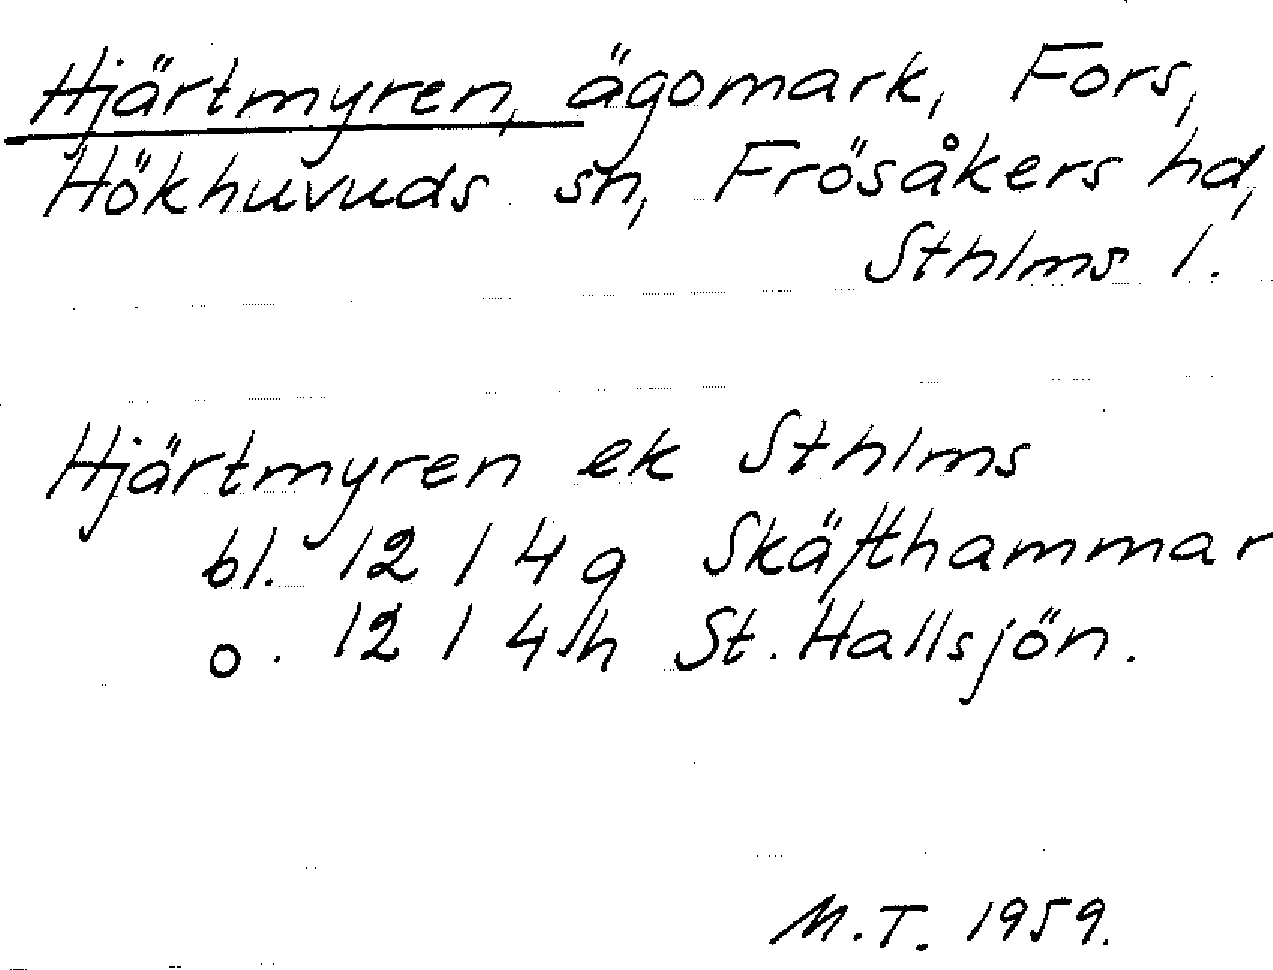 Hjärtmyren, ägomark, Fors,
Hökhuvuds sn, Frösåkers hd,
Sthlms l.
Hjärtmyren ek Sthlms
bl. 12 I 4 g Skäfthammar
o. 12 I 4 h St. Hallsjön.
M.T. 1959.